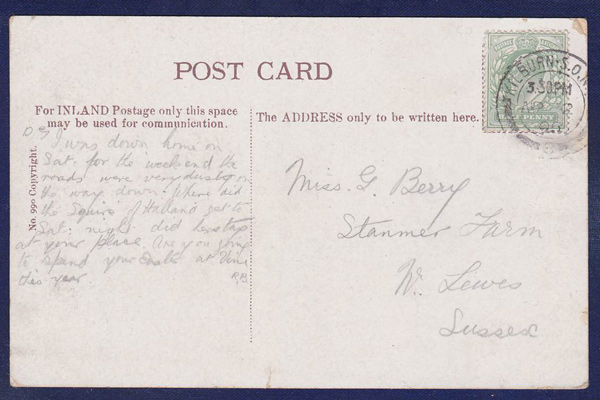 POST CARD
For INLAND Postage only this space
may be used for communication.
The ADDRESS only to be written here.
No. 990 Copyright.
D G I was down home on
Sat. for the week end the
roads were very dusty on
the way down. Where did
the Squire of Halland get to
Sat. night did he stop
at your place. Are you going
to spend your Easter at
this year.
Miss. G. Berry
Stanmer Farm
Nr. Lewes
Sussex
KILBURN. S.O.
3.30PM
HALF PENNY